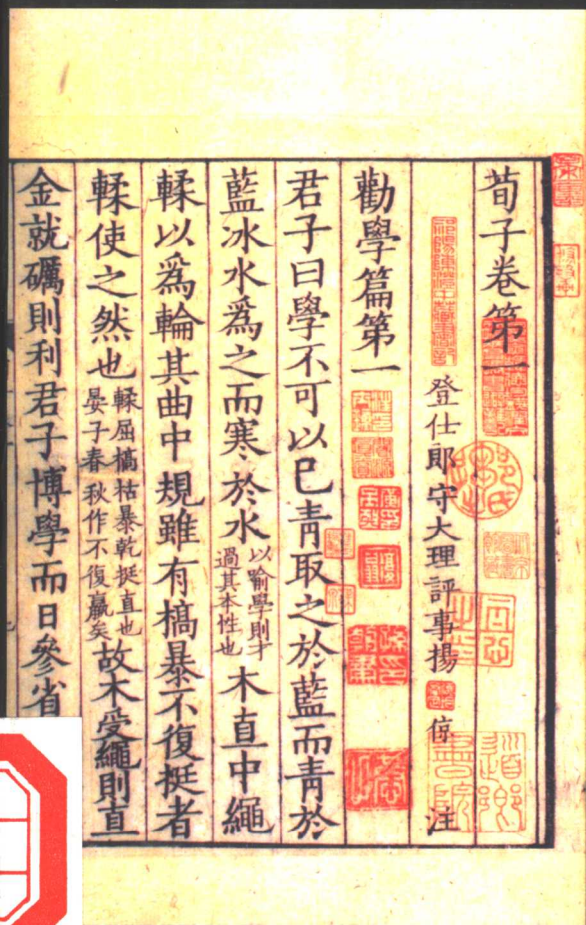 荀子卷第一
登仕郎守大理評事楊倞注
勸學篇第一
君子曰學不可以已青取之於藍而青於
藍冰水爲之而寒於水以喻學則才過其本性也木直中繩
輮以爲輪其曲中規雖有槁暴不復挺者
輮使之然也輮屈槁枯暴乾挺直也晏子春秋作不復贏矣故木受繩則直
金就礪則利君子博學而日參省